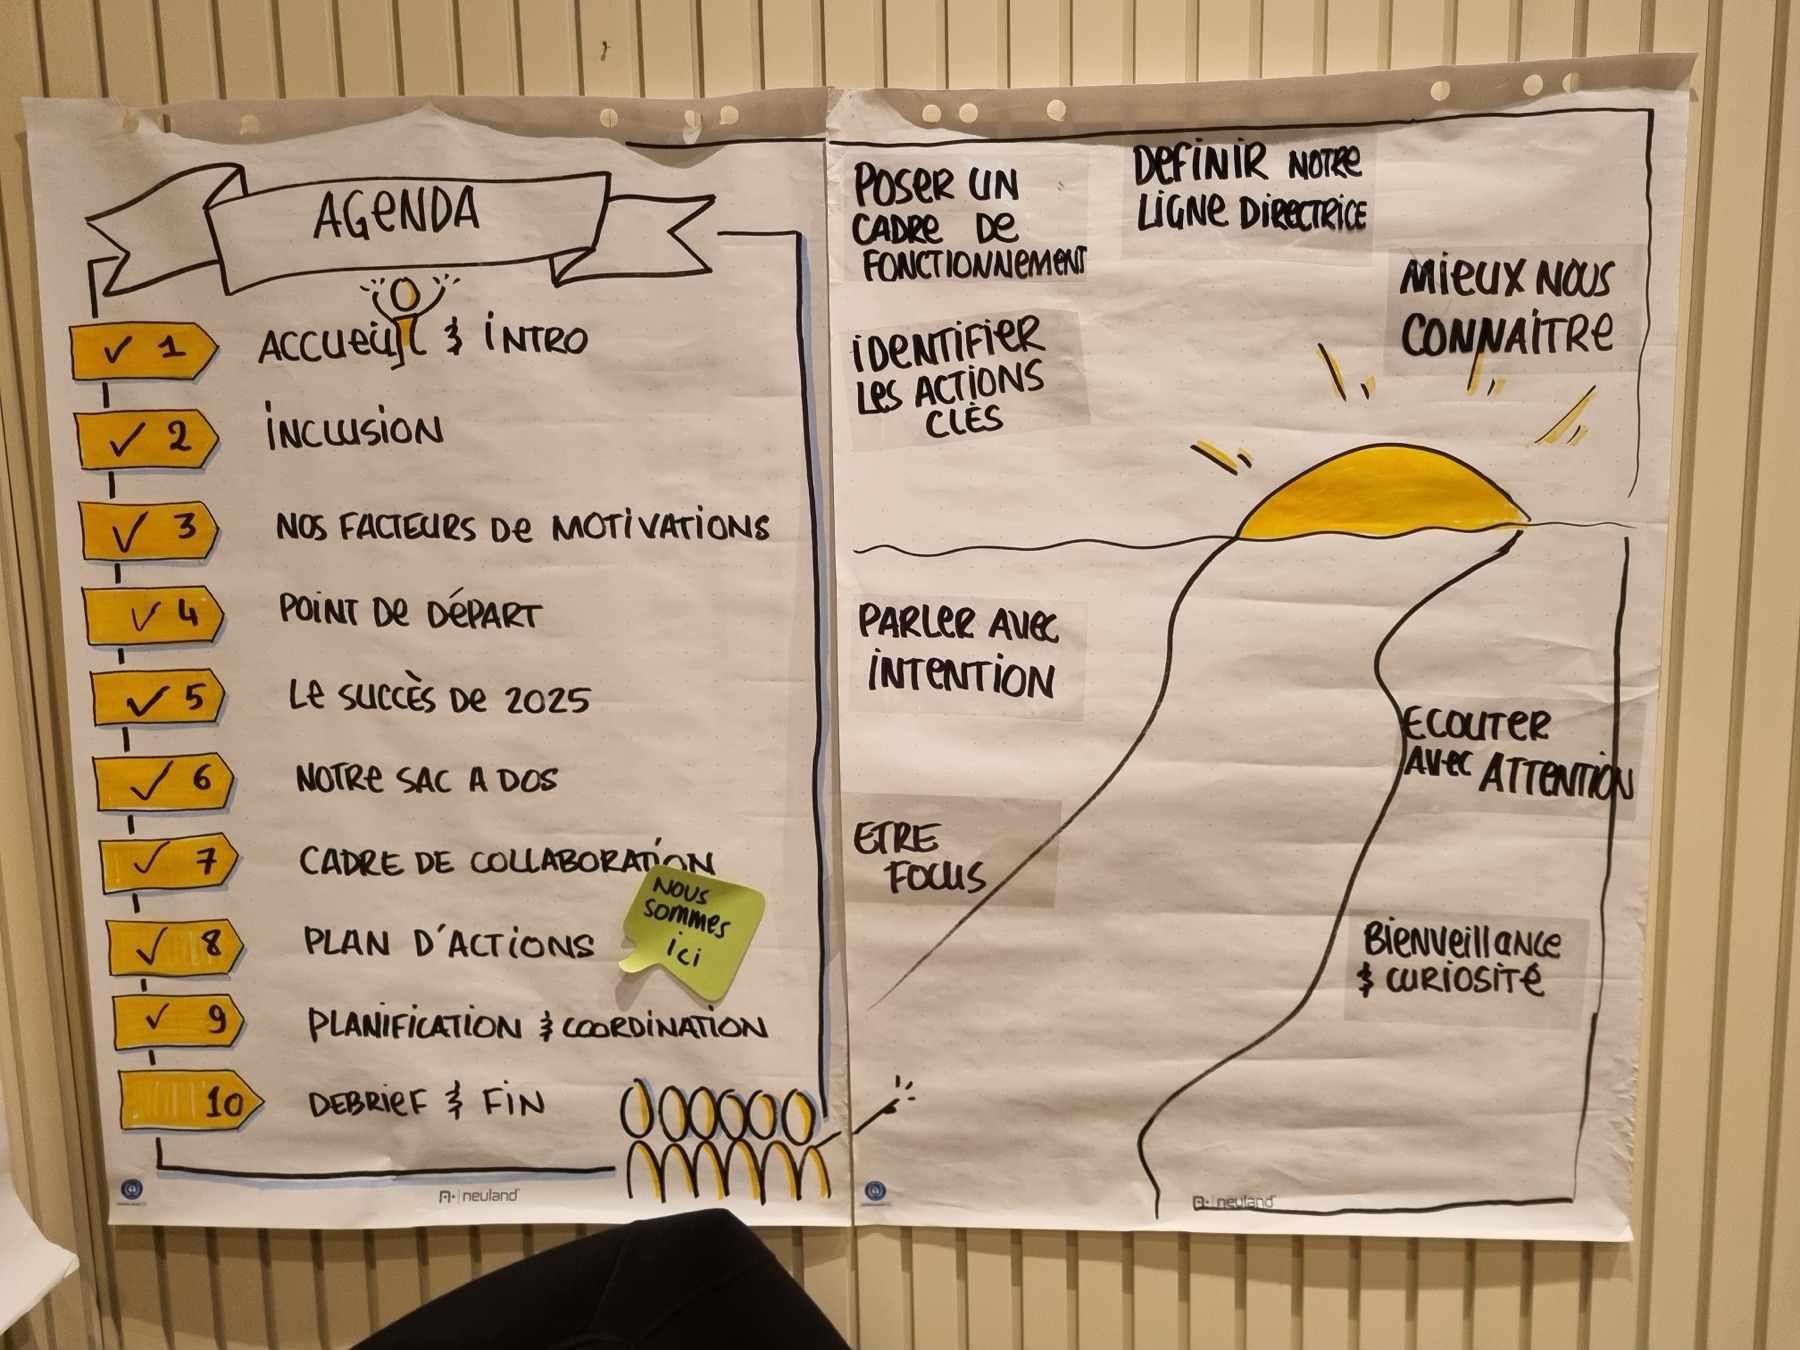 AGENDA
1 ACCUEIL & INTRO
2 INCLUSION
3 NOS FACTEURS DE MOTIVATIONS
4 POINT DE DÉPART
5 LE SUCCÈS DE 2025
6 NOTRE SAC A DOS
7 CADRE DE COLLABORATION
NOUS
SOMMES
ICI
8 PLAN D'ACTIONS
9 PLANIFICATION & COORDINATION
10 DEBRIEF & FIN
neuland
POSER UN
CADRE DE
FONCTIONNEMENT
DEFINIR NOTRE
LIGNE DIRECTRICE
MIEUX NOUS
CONNAITRE
IDENTIFIER
LES ACTIONS
CLÈS
PARLER AVEC
INTENTION
ECOUTER
AVEC ATTENTION
ETRE
FOCUS
BIENVEILLANCE
& CURIOSITÉ
neuland